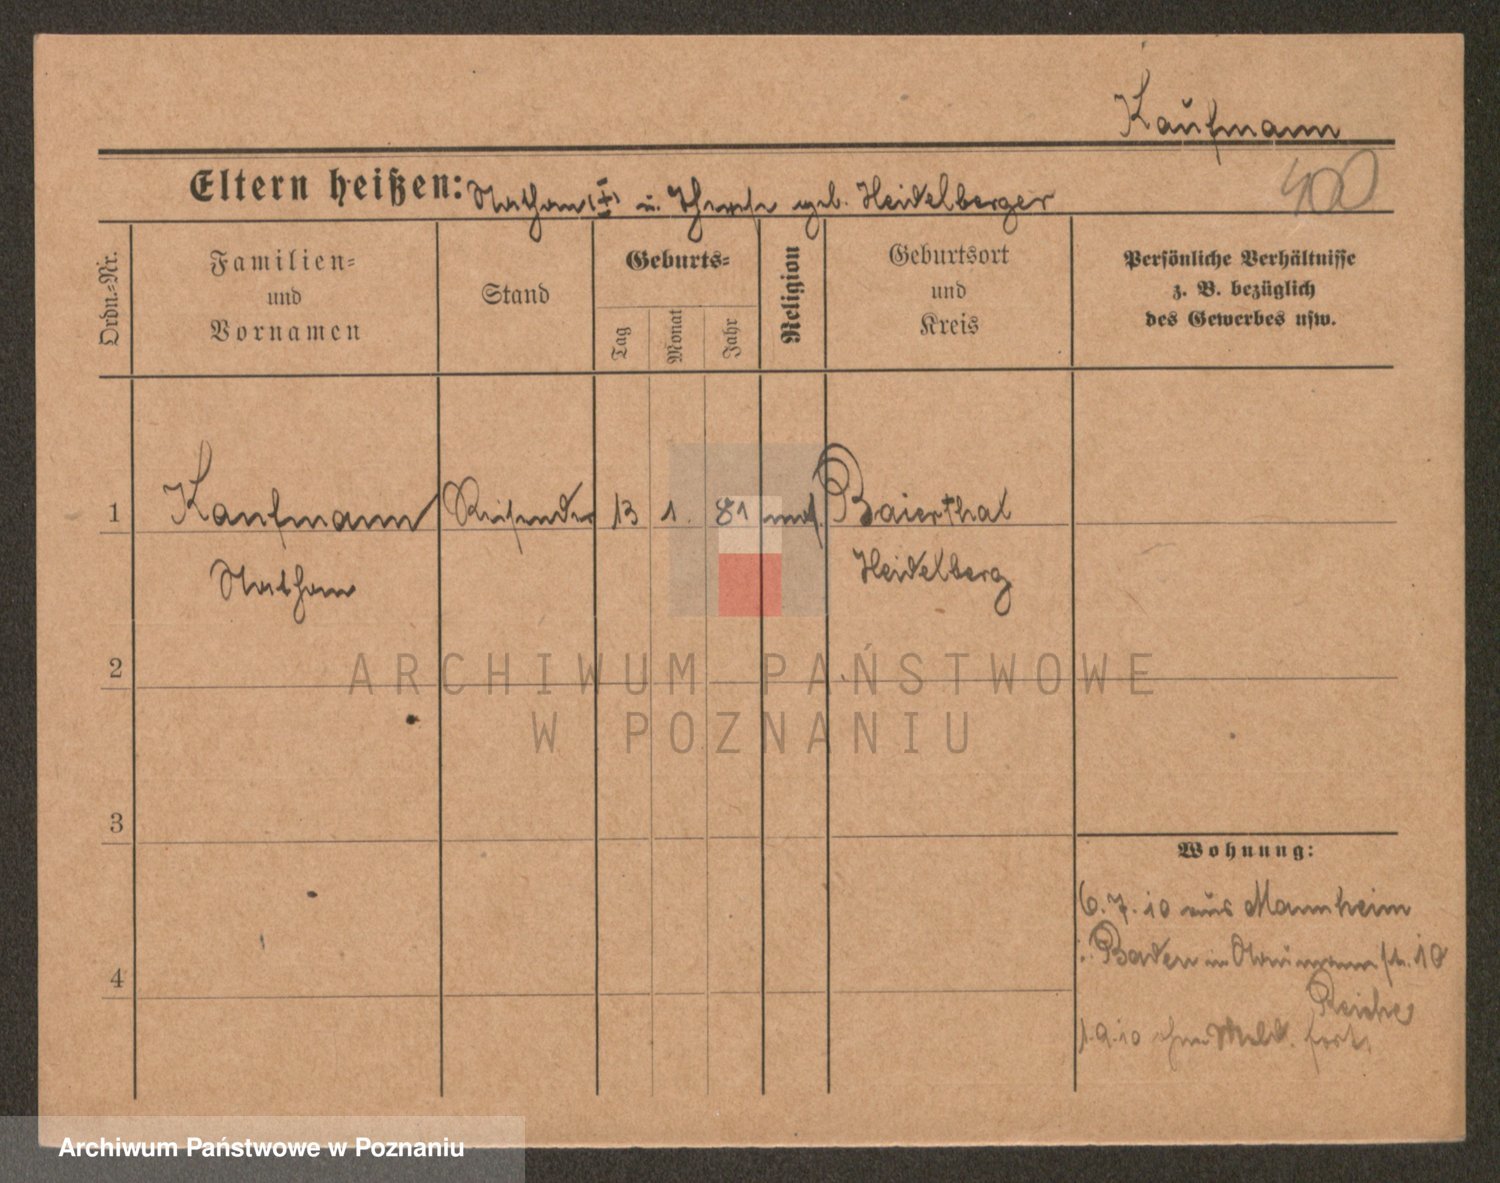 Kaufmann
400
Eltern heißen: Nathan (†) u. Therese geb. Heidelberger
Ordn.-Nr.
Familien-
und
Vornamen
Stand
Geburts-
Tag
Monat
Jahr
Religion
Geburtsort
und
Kreis
Persönliche Verhältnisse
z. B. bezüglich
des Gewerbes usw.
1 Kaufmann Reisender 13 1. 81 mos. Baierthal
Nathan Heidelberg
2
ARCHIWUM PAŃSTWOWE
W POZNANIU
3
Wohnung:
6. 7. 10 aus Mannheim
Baden in 10
4
Reiche
1.9.10 ohne Meld. fort.
Archiwum Państwowe w Poznaniu